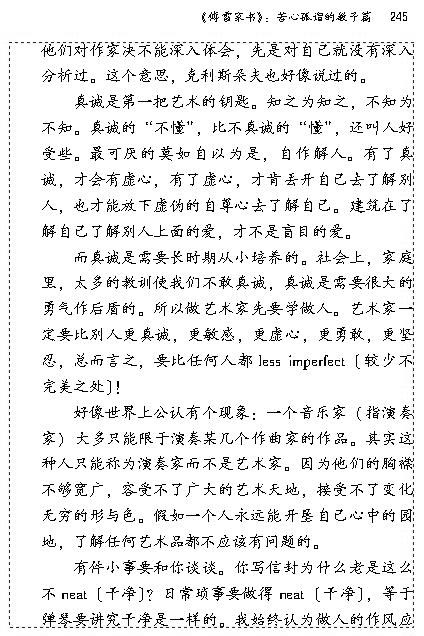 《傅雷家书》：苦心孤诣的教子篇 245
他们对作家决不能深入体会，先是对自己就没有深入
分析过。这个意思，克利斯朵夫也好像说过的。
真诚是第一把艺术的钥匙。知之为知之，不知为
不知。真诚的“不懂”，比不真诚的“懂”，还叫人好
受些。最可厌的莫如自以为是，自作解人。有了真
诚，才会有虚心，有了虚心，才肯丢开自己去了解别
人，也才能放下虚伪的自尊心去了解自己。建筑在了
解自己了解别人上面的爱，才不是盲目的爱。
而真诚是需要长时期从小培养的。社会上，家庭
里，太多的教训使我们不敢真诚，真诚是需要很大的
勇气作后盾的。所以做艺术家先要学做人。艺术家一
定要比别人更真诚，更敏感，更虚心，更勇敢，更坚
忍，总而言之，要比任何人都 less imperfect〔较少不
完美之处〕！
好像世界上公认有个现象：一个音乐家（指演奏
家）大多只能限于演奏某几个作曲家的作品。其实这
种人只能称为演奏家而不是艺术家。因为他们的胸襟
不够宽广，容受不了广大的艺术天地，接受不了变化
无穷的形与色。假如一个人永远能开垦自己心中的园
地，了解任何艺术品都不应该有问题的。
有件小事要和你谈谈。你写信封为什么老是这么
不 neat〔干净〕？日常琐事要做得 neat〔干净〕，等于
弹琴要讲究干净是一样的。我始终认为做人的作风应